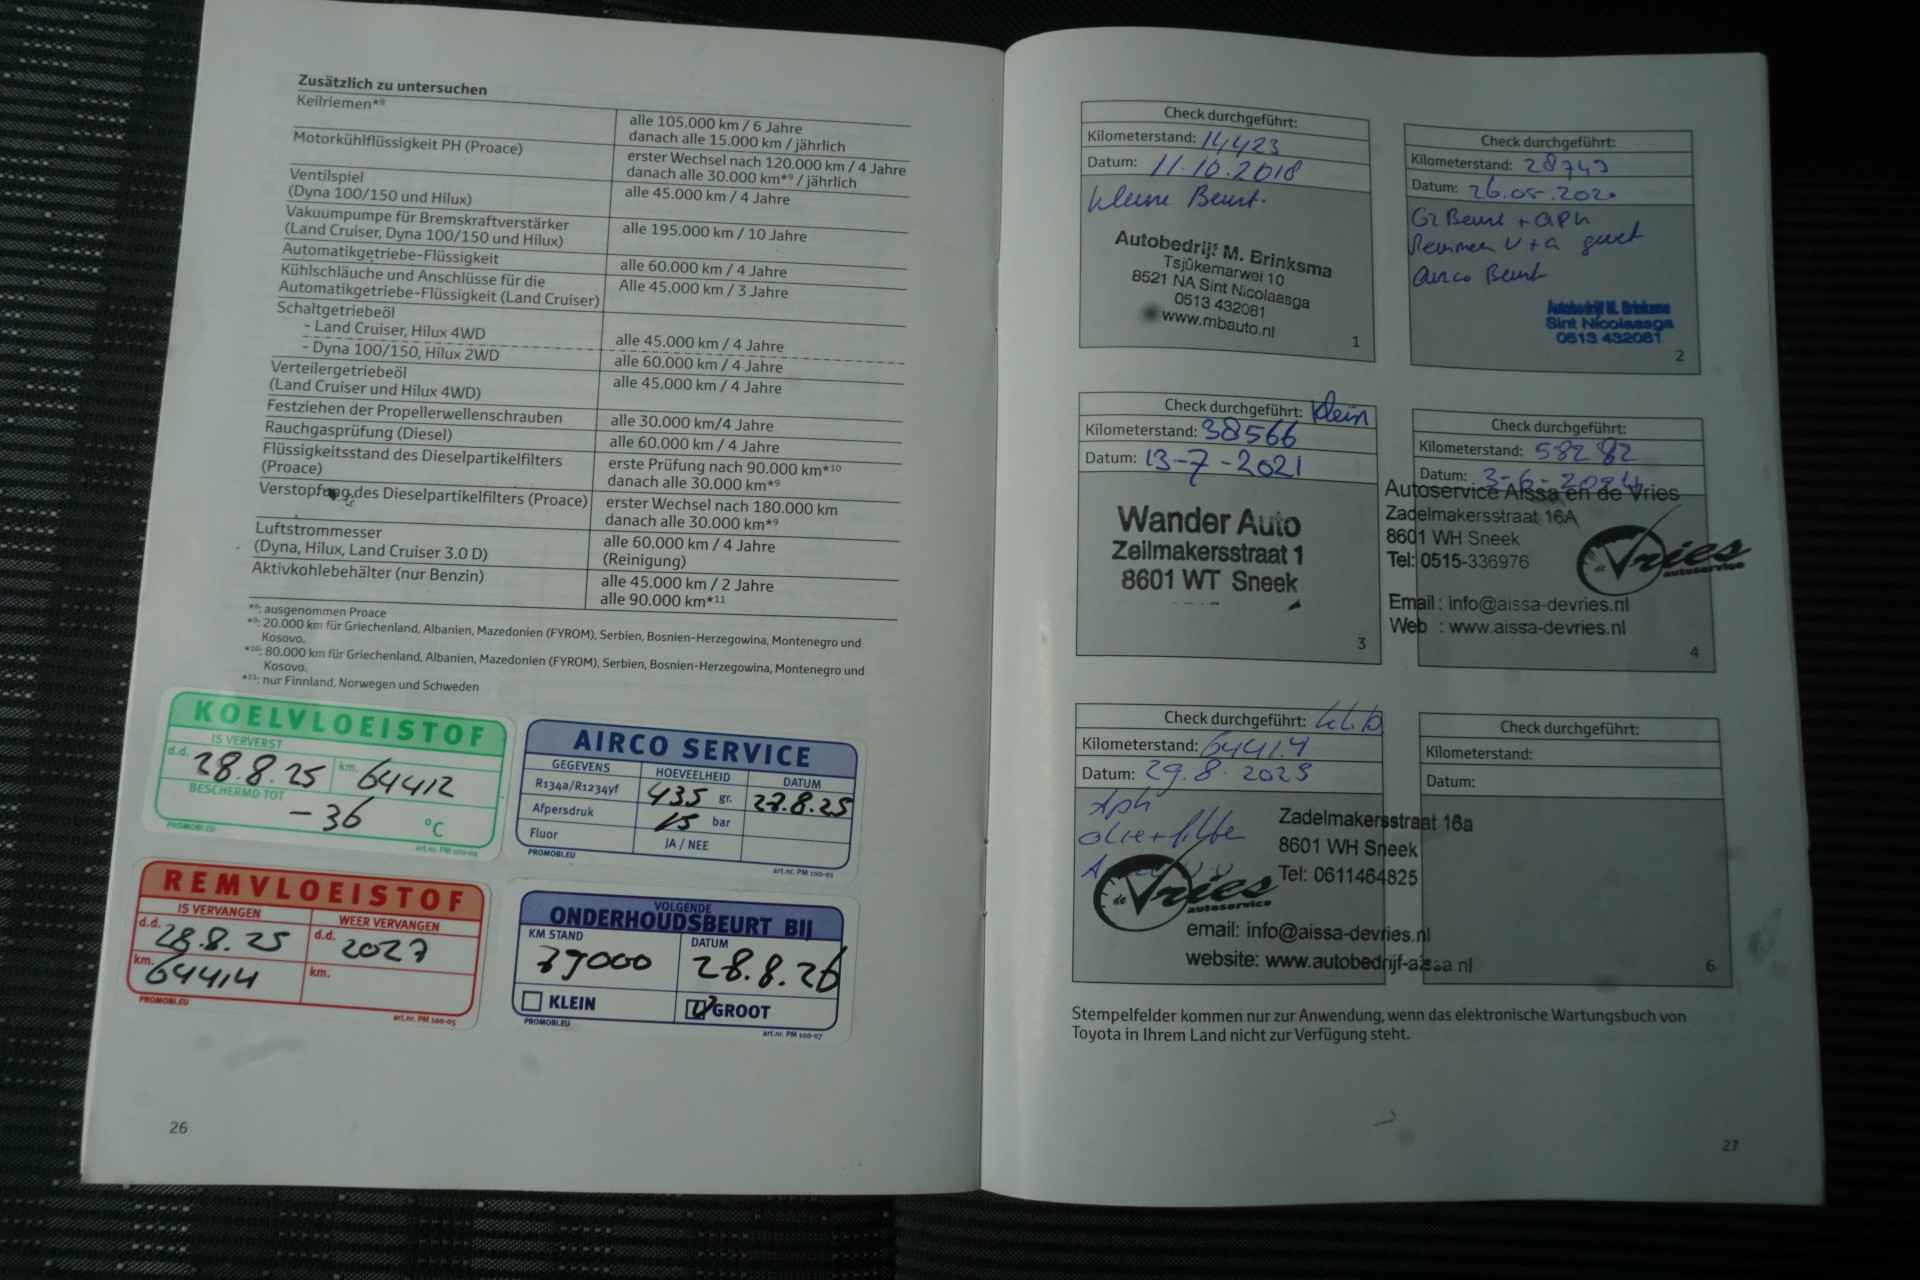 Zusätzlich zu untersuchen
Keilriemen*⁸
alle 105.000 km / 6 Jahre
danach alle 15.000 km / jährlich
Motorkühlflüssigkeit PH (Proace)
erster Wechsel nach 120.000 km / 4 Jahre
danach alle 30.000 km*⁹ / jährlich
Ventilspiel
(Dyna 100/150 und Hilux)
alle 45.000 km / 4 Jahre
Vakuumpumpe für Bremskraftverstärker
(Land Cruiser, Dyna 100/150 und Hilux)
alle 195.000 km / 10 Jahre
Automatikgetriebe-Flüssigkeit
alle 60.000 km / 4 Jahre
Kühlschläuche und Anschlüsse für die
Automatikgetriebe-Flüssigkeit (Land Cruiser)
Alle 45.000 km / 3 Jahre
Schaltgetriebeöl
- Land Cruiser, Hilux 4WD
alle 45.000 km / 4 Jahre
- Dyna 100/150, Hilux 2WD
alle 60.000 km / 4 Jahre
Verteilergetriebeöl
(Land Cruiser und Hilux 4WD)
alle 45.000 km / 4 Jahre
Festziehen der Propellerwellenschrauben
alle 30.000 km/4 Jahre
Rauchgasprüfung (Diesel)
alle 60.000 km / 4 Jahre
Flüssigkeitsstand des Dieselpartikelfilters
(Proace)
erste Prüfung nach 90.000 km*¹⁰
danach alle 30.000 km*⁹
Verstopfung des Dieselpartikelfilters (Proace)
erster Wechsel nach 180.000 km
danach alle 30.000 km*⁹
Luftstrommesser
(Dyna, Hilux, Land Cruiser 3.0 D)
alle 60.000 km / 4 Jahre
(Reinigung)
Aktivkohlebehälter (nur Benzin)
alle 45.000 km / 2 Jahre
alle 90.000 km*¹¹
*⁸: ausgenommen Proace
*⁹: 20.000 km für Griechenland, Albanien, Mazedonien (FYROM), Serbien, Bosnien-Herzegowina, Montenegro und
Kosovo.
*¹⁰: 80.000 km für Griechenland, Albanien, Mazedonien (FYROM), Serbien, Bosnien-Herzegowina, Montenegro und
Kosovo.
*¹¹: nur Finnland, Norwegen und Schweden
KOELVLOEISTOF
IS VERVERST
d.d. 28.8.25 km. 64412
BESCHERMD TOT
-36 °C
PROMOBI.EU
art.nr. PM 100-04
AIRCO SERVICE
GEGEVENS HOEVEELHEID DATUM
R134a/R1234yf 435 gr. 28.8.25
Afpersdruk 15 bar
Fluor JA / NEE
PROMOBI.EU
art.nr. PM 100-01
REMVLOEISTOF
IS VERVANGEN WEER VERVANGEN
d.d. 28.8.25 d.d. 2027
km. 64414 km.
PROMOBI.EU
art.nr. PM 100-05
VOLGENDE
ONDERHOUDSBEURT BIJ
KM STAND DATUM
79000 28.8.26
KLEIN GROOT
PROMOBI.EU
art.nr. PM 100-07
26
Check durchgeführt:
Kilometerstand: 14423
Datum: 11.10.2018
kleine Beurt.
Autobedrijf M. Brinksma
Tsjûkemarwei 10
8521 NA Sint Nicolaasga
0513 432081
www.mbauto.nl
1
Check durchgeführt:
Kilometerstand: 28743
Datum: 26.05.2020
Gr Beurt + APK
Remmen V + a goed
Airco Beurt
Autobedrijf M. Brinksma
Sint Nicolaasga
0513 432081
2
Check durchgeführt: klein
Kilometerstand: 38566
Datum: 13-7-2021
Wander Auto
Zeilmakersstraat 1
8601 WT Sneek
3
Check durchgeführt:
Kilometerstand: 58282
Datum: 3-6-2024
Autoservice Aissa en de Vries
Zadelmakersstraat 16A
8601 WH Sneek
Tel: 0515-336976
de Vries
autoservice
Email : info@aissa-devries.nl
Web : www.aissa-devries.nl
4
Check durchgeführt:
Kilometerstand: 64414
Datum: 29.8.2025
Apk
olie + filter
Zadelmakersstraat 16a
8601 WH Sneek
Tel: 0611464825
de Vries
autoservice
email: info@aissa-devries.nl
website: www.autobedrijf-aissa.nl
Check durchgeführt:
Kilometerstand:
Datum:
6
Stempelfelder kommen nur zur Anwendung, wenn das elektronische Wartungsbuch von
Toyota in Ihrem Land nicht zur Verfügung steht.
27